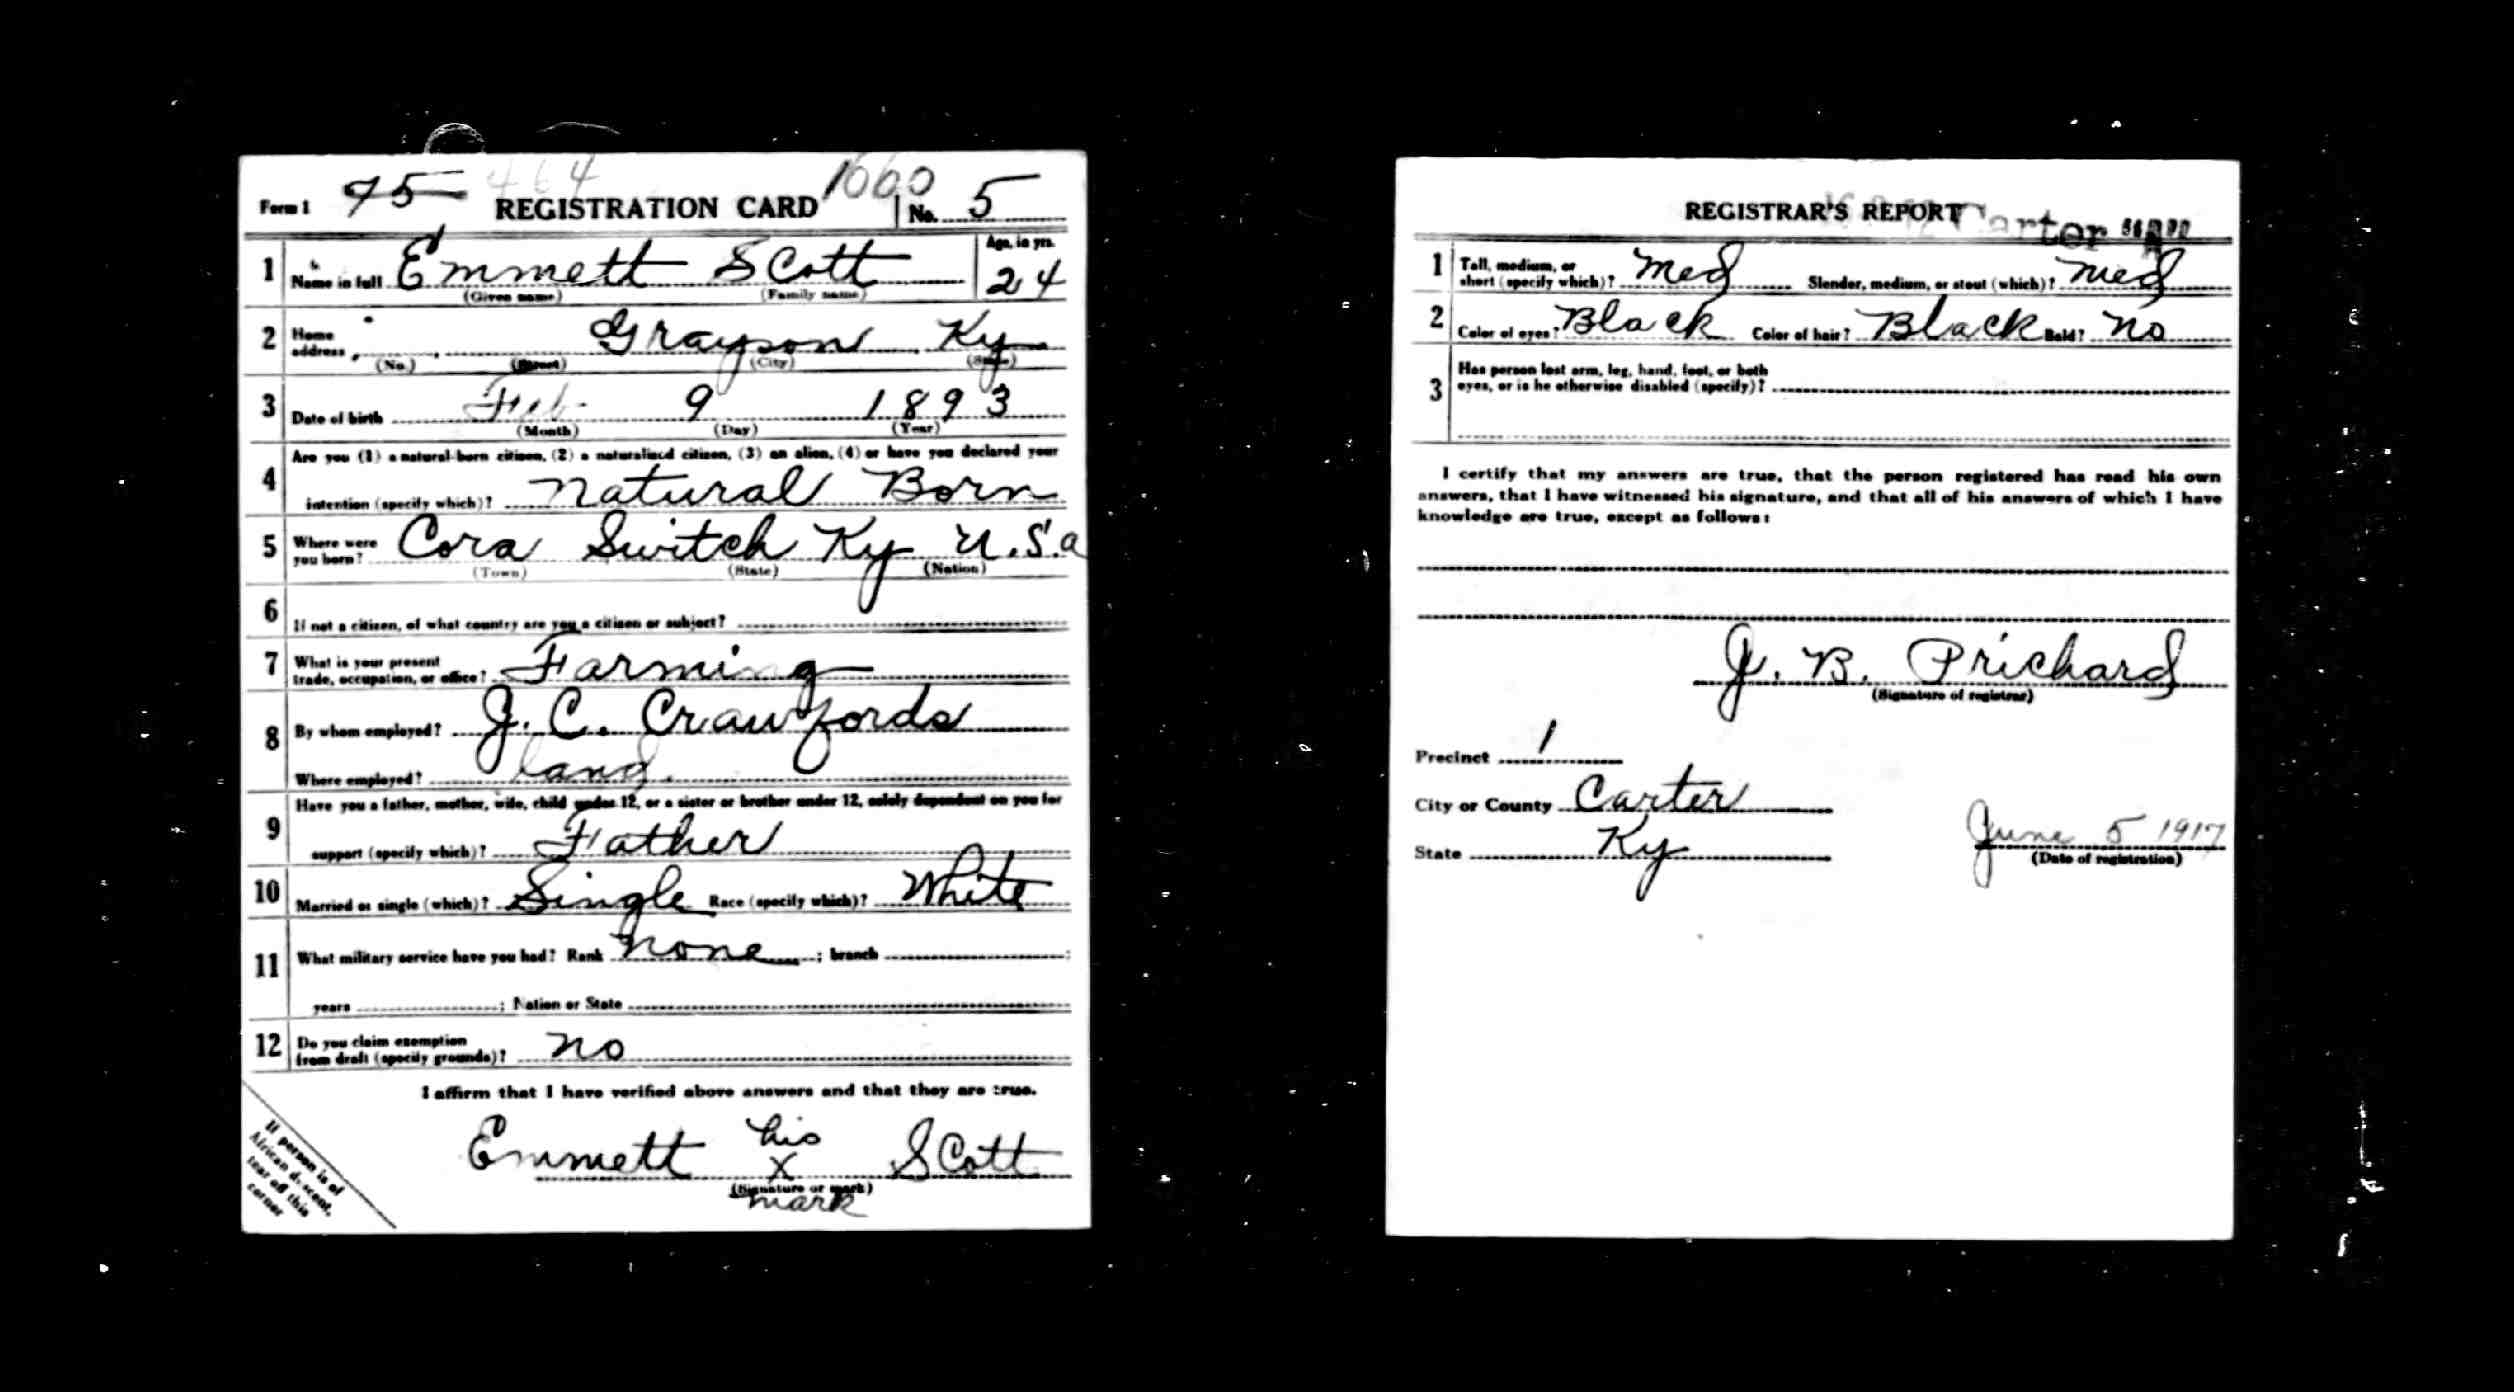 Form 1 75 464 REGISTRATION CARD 1660 No. 5
1 Name in full Emmett Scott Age, in yrs. 24
(Given name) (Family name)
2 Home address Grayson Ky
(No.) (Street) (City) (State)
3 Date of birth Feb. 9 1893
(Month) (Day) (Year)
4 Are you (1) a natural-born citizen, (2) a naturalized citizen, (3) an alien, (4) or have you declared your
intention (specify which)? Natural Born
5 Where were you born? Cora Switch Ky U.S.a
(Town) (State) (Nation)
6 If not a citizen, of what country are you a citizen or subject?
7 What is your present trade, occupation, or office? Farming
8 By whom employed? J. C. Crawfords
Where employed? land.
9 Have you a father, mother, wife, child under 12, or a sister or brother under 12, solely dependent on you for
support (specify which)? Father
10 Married or single (which)? Single Race (specify which)? White
11 What military service have you had? Rank none ; branch ;
years ; Nation or State
12 Do you claim exemption from draft (specify grounds)? no
I affirm that I have verified above answers and that they are true.
Emmett his X Scott
(Signature or mark)
mark
If person is of
African descent,
tear off this
corner
REGISTRAR'S REPORT Carter
1 Tall, medium, or short (specify which)? Med Slender, medium, or stout (which)? Med
2 Color of eyes? Black Color of hair? Black Bald? No
3 Has person lost arm, leg, hand, foot, or both
eyes, or is he otherwise disabled (specify)?
I certify that my answers are true, that the person registered has read his own
answers, that I have witnessed his signature, and that all of his answers of which I have
knowledge are true, except as follows:
J. B. Prichard
(Signature of registrar)
Precinct 1
City or County Carter
State Ky
June 5 1917
(Date of registration)